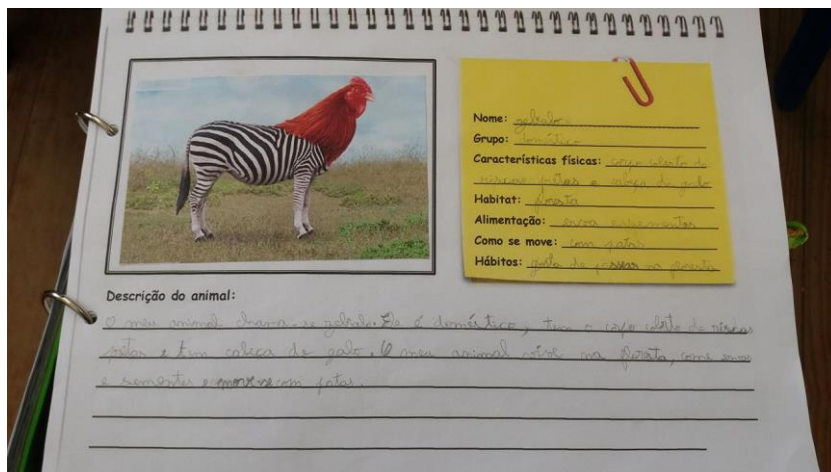 Nome: zebralo
Grupo: doméstico
Características físicas: corpo coberto de
riscas pretas e cabeça de galo
Habitat: floresta
Alimentação: ervas e sementes
Como se move: com patas
Hábitos: gosta de passear na floresta
Descrição do animal:
O meu animal chama-se zebralo. Ele é doméstico, tem o corpo coberto de riscas
pretas e tem cabeça de galo. O meu animal vive na floresta, come ervas
e sementes e move-se com patas.